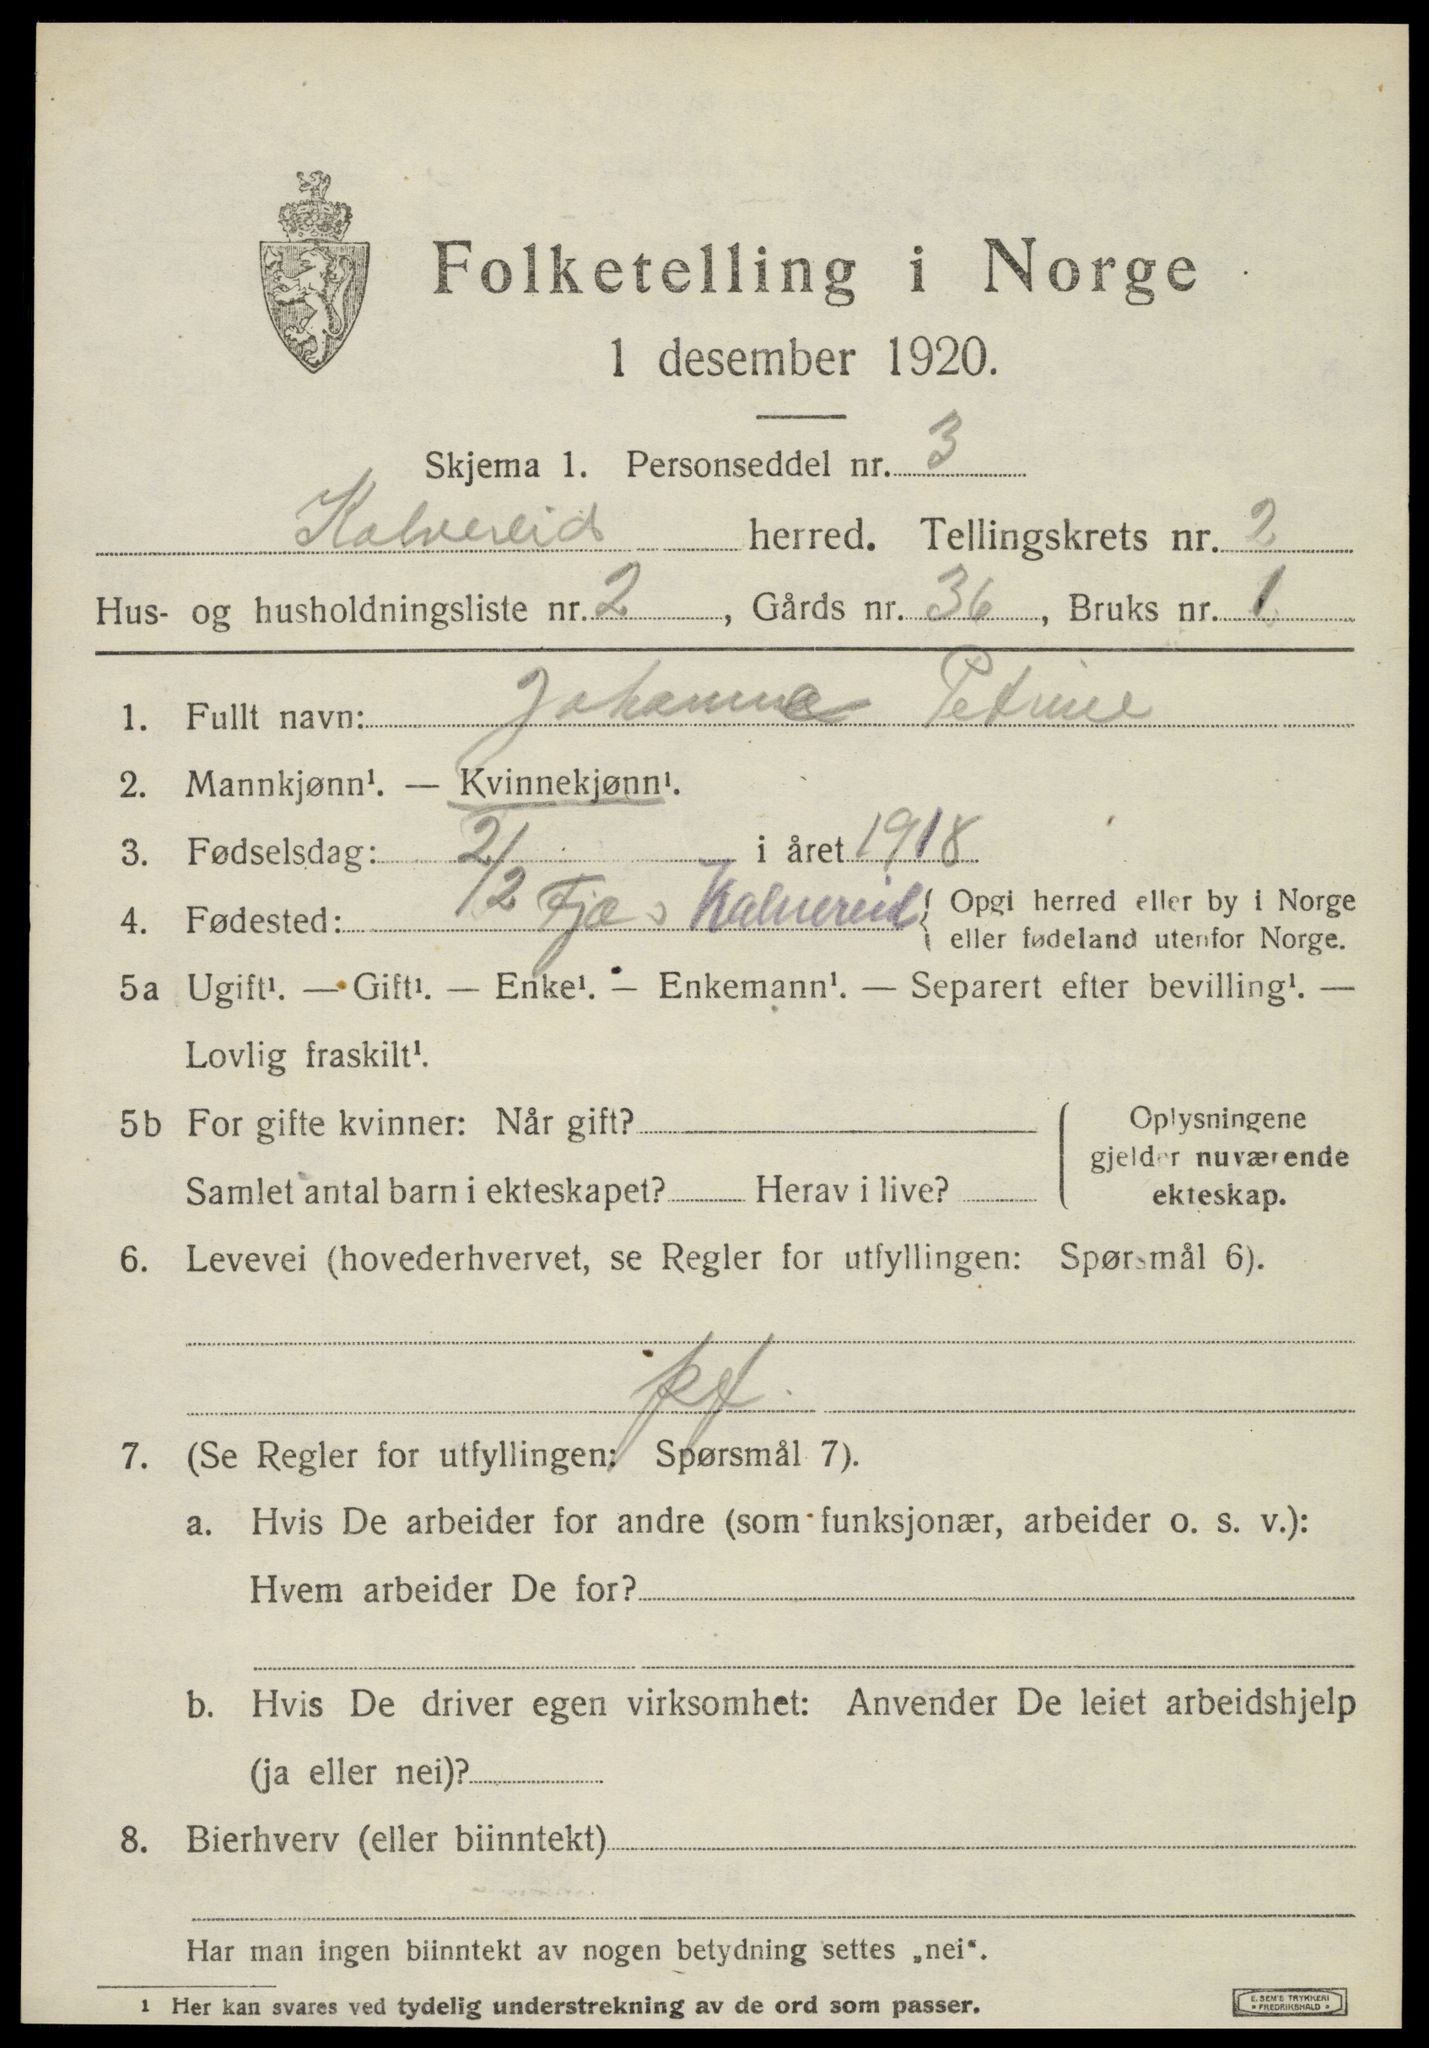 Folketelling i Norge
1 desember 1920.
Skjema 1. Personseddel nr. 3
Kalvereid herred. Tellingskrets nr. 2
Hus- og husholdningsliste nr. 2, Gårds nr. 36, Bruks nr. 1
1. Fullt navn: Johanna Petrine
2. Mannkjønn¹. — Kvinnekjønn¹.
3. Fødselsdag: 2/2 i året 1918
4. Fødested: Kalvereid { Opgi herred eller by i Norge
eller fødeland utenfor Norge.
5a Ugift¹. — Gift¹. — Enke¹. — Enkemann¹. — Separert efter bevilling¹. —
Lovlig fraskilt¹.
5b For gifte kvinner: Når gift?
Samlet antal barn i ekteskapet? Herav i live?
Oplysningene
gjelder nuværende
ekteskap.
6. Levevei (hovederhvervet, se Regler for utfyllingen: Spørsmål 6).
7. (Se Regler for utfyllingen: Spørsmål 7).
a. Hvis De arbeider for andre (som funksjonær, arbeider o. s. v.):
Hvem arbeider De for?
b. Hvis De driver egen virksomhet: Anvender De leiet arbeidshjelp
(ja eller nei)?
8. Bierhverv (eller biinntekt)
Har man ingen biinntekt av nogen betydning settes „nei“.
1 Her kan svares ved tydelig understrekning av de ord som passer.
E. SEM'S TRYKKERI
FREDRIKSHALD